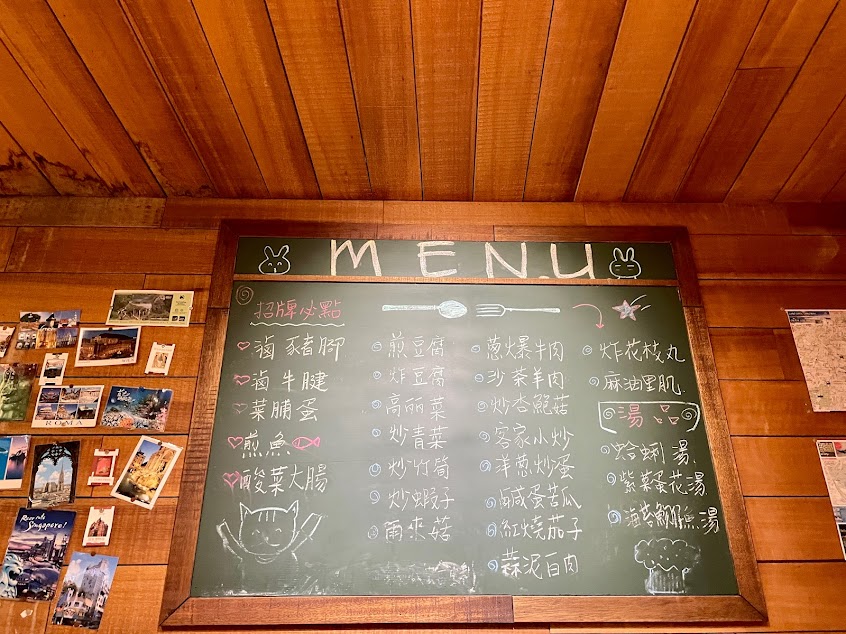 MENU
招牌必點
滷豬腳
滷牛腱
菜脯蛋
煎魚
酸菜大腸
煎豆腐
炸豆腐
高麗菜
炒青菜
炒竹筍
炒蝦子
雨來菇
蔥爆牛肉
沙茶羊肉
炒杏鮑菇
客家小炒
洋蔥炒蛋
鹹蛋苦瓜
紅燒茄子
蒜泥白肉
炸花枝丸
麻油里肌
湯品
蛤蜊湯
紫菜蛋花湯
ROMA
Singapore!